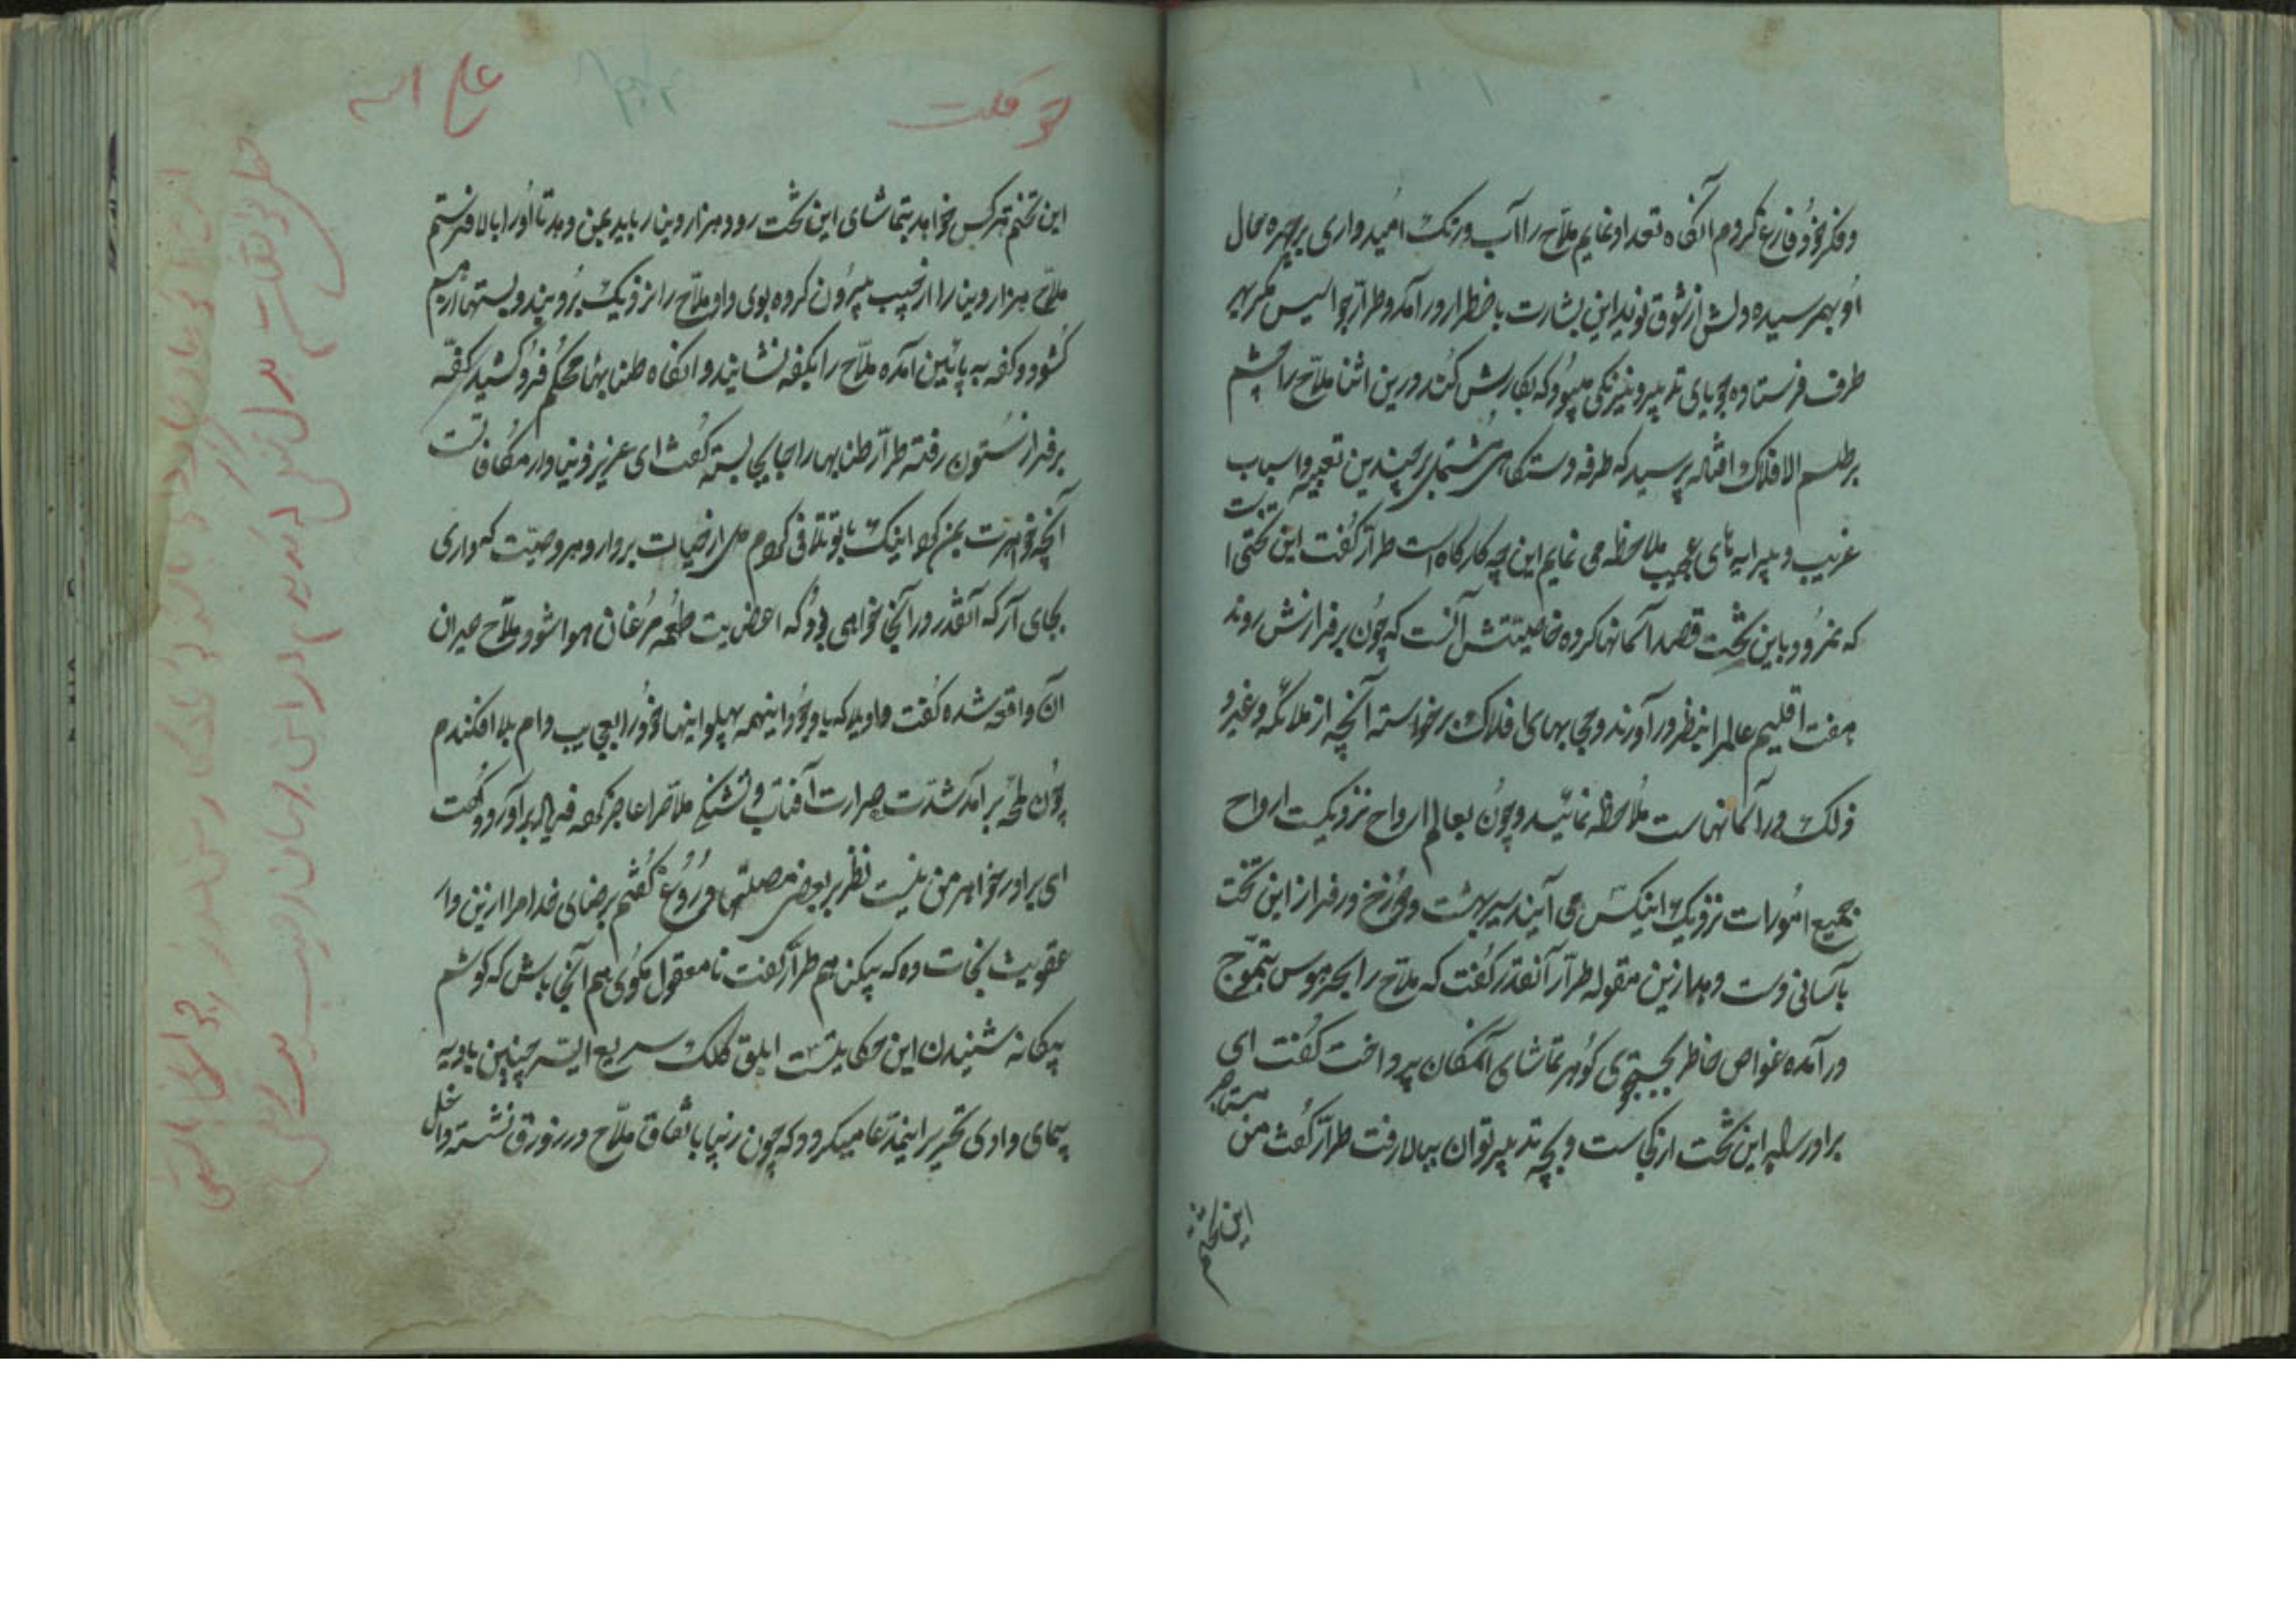 و فکر خود فارغ کردم آنگاه تعداد نمایم ملاح را آب و رنگ امیدواری بر چهره حال
او بهم رسیده دلش از شوق نوید این بشارت باضطرار در آمد و طرار جوالیس مکر بهر
طرف فرستاده جویای تدبیر و نیرنگی میبود که بکارش کند درین اثنا ملاح را چشم
بر طلسم الافلاک افتاده پرسید که طرفه دستگاهی مشتمل بر چندین تعبیه و اسباب
غریب و پیرایه های عجیب ملاحظه می نمایم این چه کارگاه است طرار گفت این تختی است
که نمرود باین تخت قصد آسمانها کرده خاصیتش آنست که چون بر فرازش روند
هفت اقلیم عالم را بنظر در آورند و حجابهای افلاک برخواسته آنچه از ملائکه و غیر و
ذلک در آسمانهاست ملاحظه نمائید و چون بعالم ارواح نزدیکست ارواح
جمیع اموات نزدیک اینکس می آیند سیر بهشت و دوزخ در فراز این تخت
بآسانی دست دهد ازین مقوله طرار آنقدر گفت که ملاح را بحر هوس بتموج
در آمده غواص خاطر بجستجوی گوهر تماشای آنمکان پرداخت گفت ای
برادر سراپر این تخت از کجاست و بچه تدبیر توان ببالا رفت طرار گفت من مستاجر
این تختم
حق فکت
علی اسه
این تختم هر کس خواهد بتماشای این تخت رود هزار دینار باید بمن دهد تا او را بالا فرستم
ملاح هزار دینار را از جیب بیرون کرده بوی داد ملاح را نزدیک برد بند و بستها از هم
گشود و کفه به پائین آمده ملاح را بکفه نشانید و آنگاه طنابها محکم فرو کشید کفه
بر فراز ستون رفته طرار طنابها را جابجا بسته گفت ای عزیز دنیا دار مکافات است
آنچه خواهرت بمن کرد اینک بتو تلافی کردم دل از حیات بردار و هر وصیت که داری
بجای آر که آنقدر در آنجا خواهی بود که اعضایت طعمه مرغان هوا شود ملاح حیران
آن واقعه شده گفت واویلا که با وجود اینهمه پهلو اینها خود را بعجایب دام بلا افکندم
چون لمحه بر آمد شدت حرارت آفتاب و تشنگی ملاح را عاجز کرده فریاد بر آورد و گفت
ای برادر خواهر من نیست نظر بر بعضی مصلحتها دروغ گفتم برضای خدا مرا ازین دار
عقوبت نجات ده که بیگناهم طرار گفت نامعقول مگوی هم آنجا باش که گوشم
بیگانه شنیدن این حکایتست ابلق کلک سریع السیر چنین بادیه
پیمای وادی تحریر این مدعا میگردد که چون زنپا باتفاق ملاح در زورق نشسته داخل